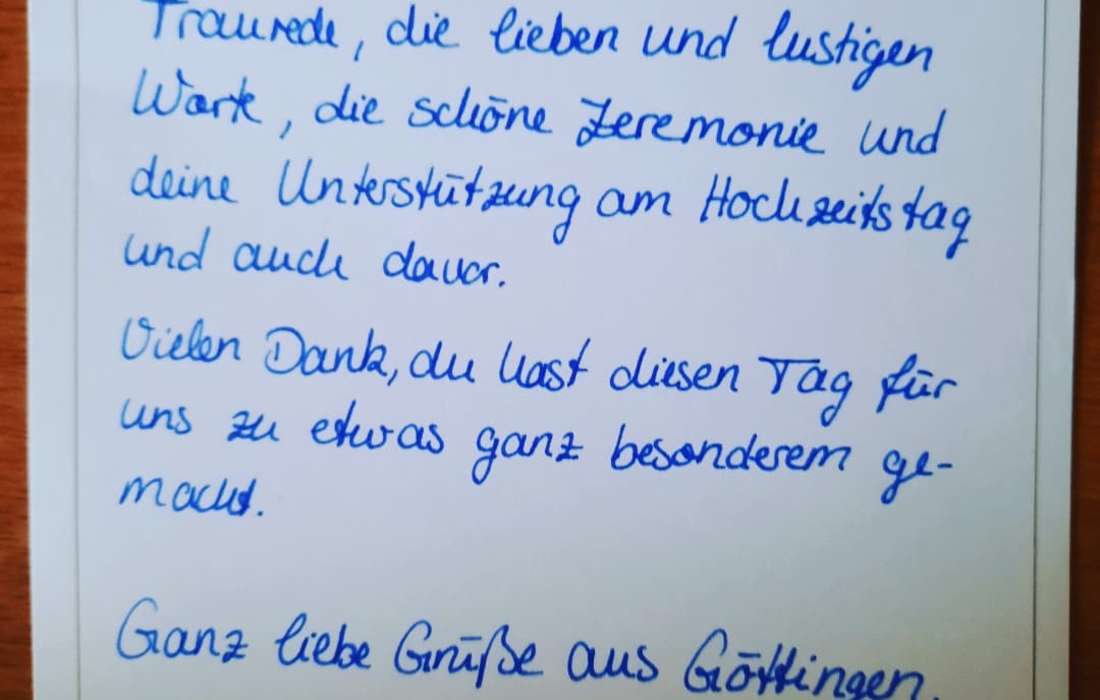 Traurede, die lieben und lustigen
Worte, die schöne Zeremonie und
deine Unterstützung am Hochzeitstag
und auch davor.
Vielen Dank, du hast diesen Tag für
uns zu etwas ganz besonderem ge-
macht.
Ganz liebe Grüße aus Göttingen,